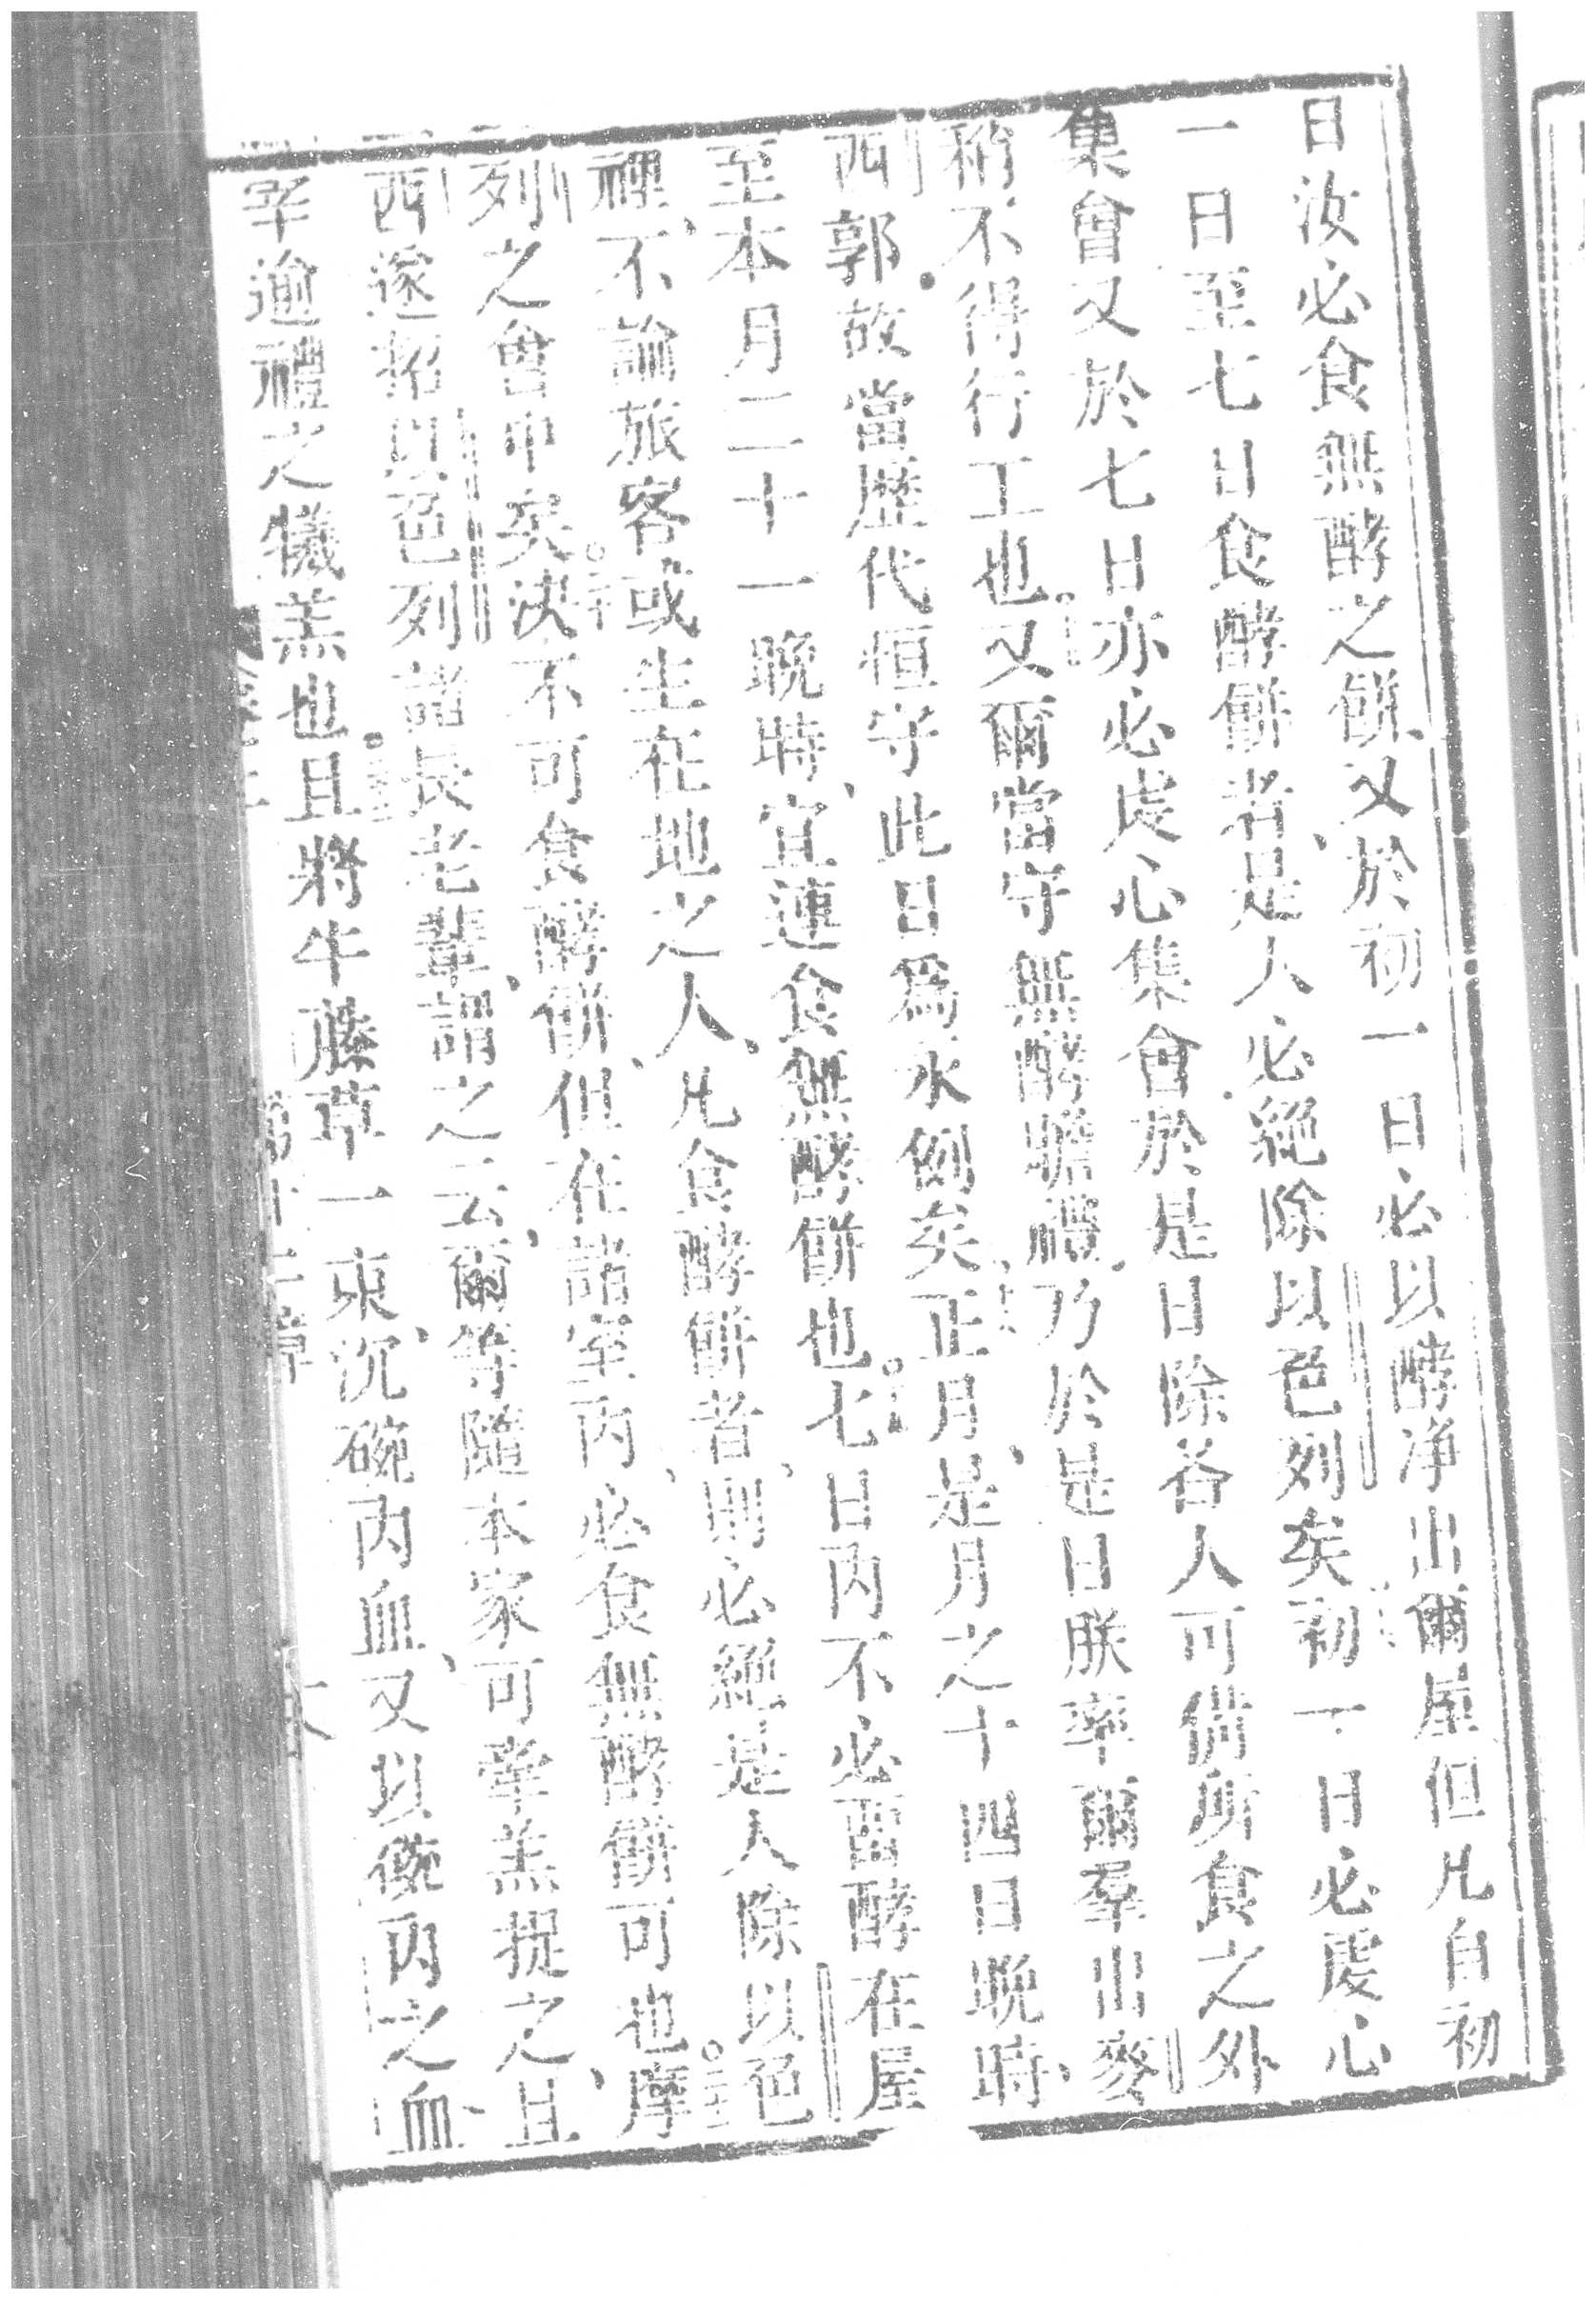 日汝必食無酵之餅、又於初一日必以酵淨出爾屋但凡自初
一日至七日食酵餅者、是人必絕除以色列矣初一日必虔心
集會又於七日亦必虔心集會於是日除各人可備所食之外
稍不得行工也。又爾當守無酵瞻禮、乃於是日朕率爾羣出麥
西郭故當歷代恒守此日為永例矣正月、是月之十四日晚時、
至本月二十一晚時、宜連食無酵餅也。七日內不必留酵在屋
裡、不論旅客或生在地之人、凡食酵餅者、則必絕是人除以色
列之會中矣。決不可食酵餅、但在諸室內、必食無酵餅可也。摩
西遂招以色列諸長老輩、謂之云、爾等隨本家可掌羔捉之、且
宰逾禮之犧羔也。且將牛膝草一束、沉碗內血、又以碗內之血